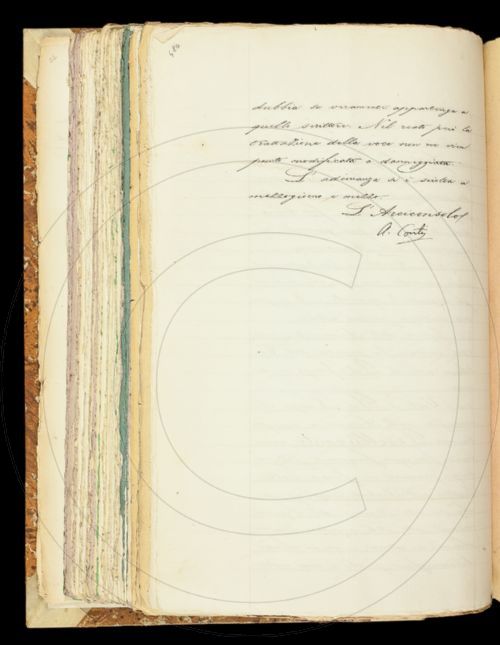 dubbia se veramente appartenga a
quello scrittore. Nel resto poi la
trattazione della voce non ne vien
punto modificata o danneggiata.
L'adunanza si è sciolta a
mezzogiorno e mezzo.
L'Arciconsolo
A. Conti